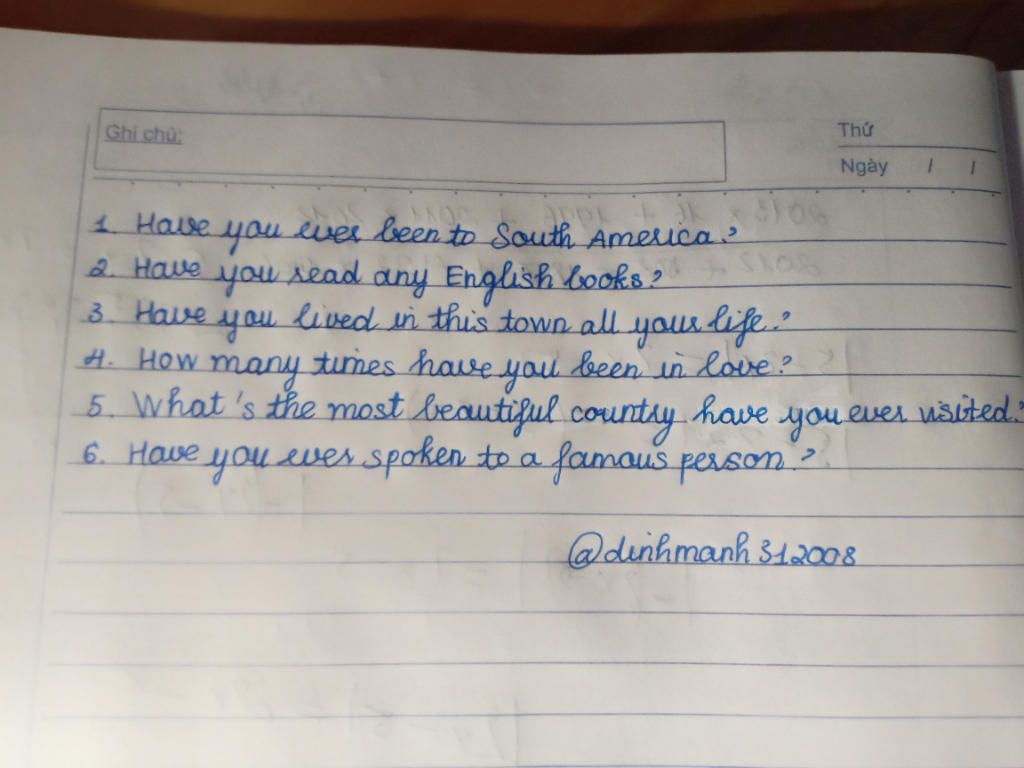 Ghi chú:
Thứ
Ngày / /
1. Have you ever been to South America?
2. Have you read any English books?
3. Have you lived in this town all your life?
4. How many times have you been in love?
5. What's the most beautiful country have you ever visited?
6. Have you ever spoken to a famous person?
@dinhmanh312008